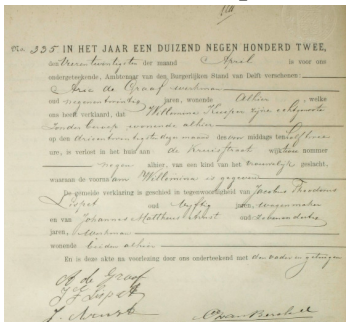 No. 335 IN HET JAAR EEN DUIZEND NEGEN HONDERD TWEE,
den Vierentwintigsten der maand April is voor ons
ondergeteekende, Ambtenaar van den Burgerlijken Stand van Delft verschenen:
Arie de Graaf werkman
oud negenentwintig jaren, wonende Alhier, welke
ons heeft verklaard, dat Willemina Kuiper zijne echtgenoote
zonder beroep wonende alhier
op den dezer maand des middags ten half
ure, is verlost in het huis aan de Kruisstraat wijk nummer
negen alhier, van een kind van het vrouwelijk geslacht,
waaraan de voornaam Willemina is gegeven
De gemelde verklaring is geschied in tegenwoordigheid van Jacobus Theodorus
Lispet oud vijftig jaren, wagenmaker
en van Johannes Mattheus Ernst oud
jaren, werkman
wonende beiden alhier
En is deze akte na voorlezing door ons onderteekend met den vader en getuigen
A de Graaf
J Lispet
J. Ernst